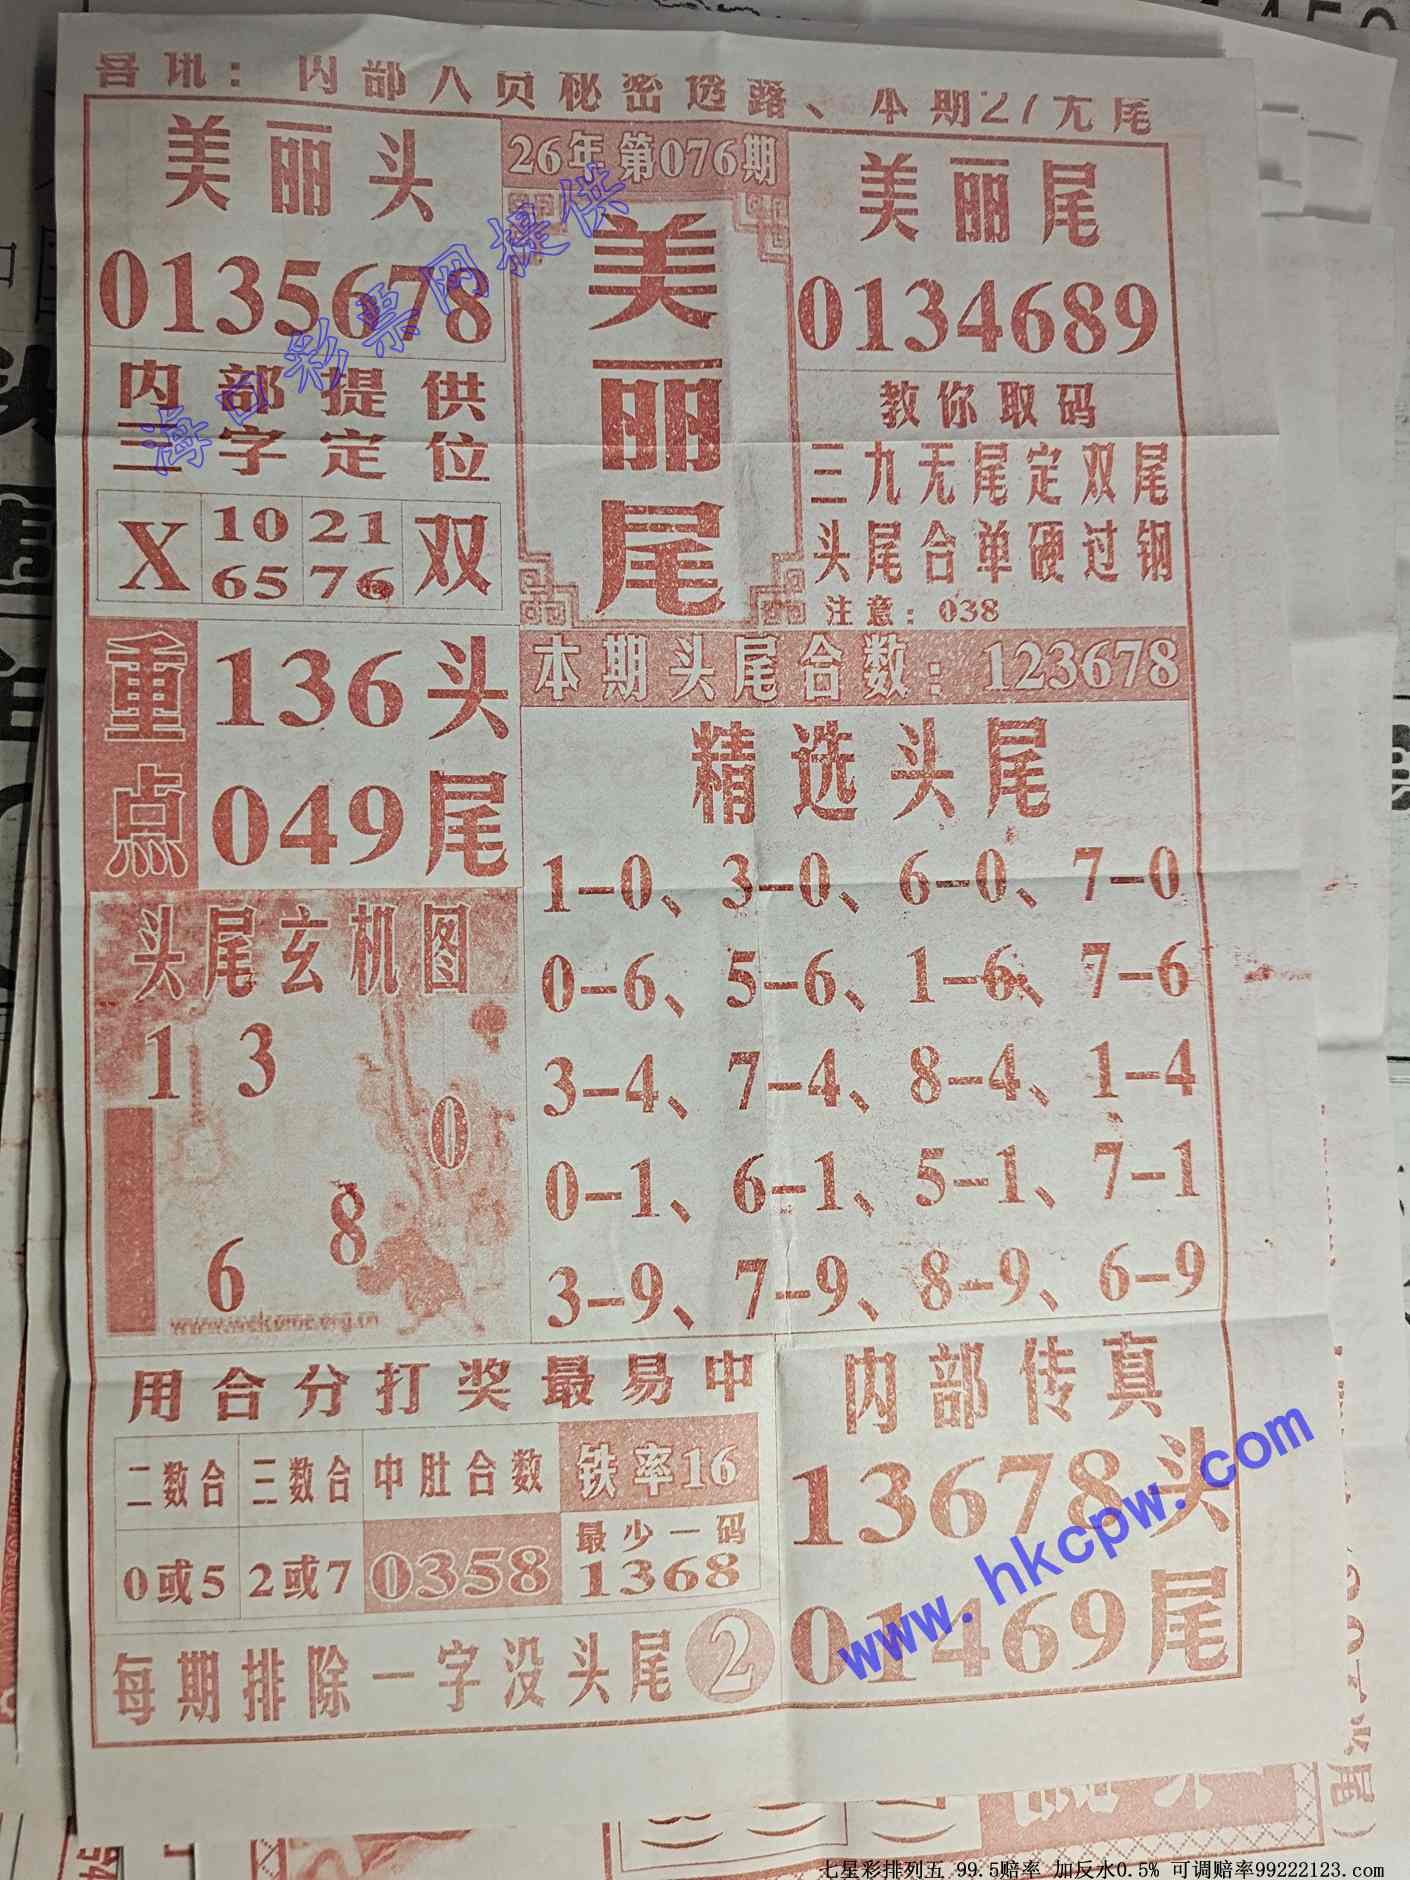 喜讯：内部人员秘密透露、本期27无尾
美丽头
0135678
26年第076期
美丽尾
美丽尾
0134689
内部提供
三字定位
X 10 21 双
65 76
教你取码
三九无尾定双尾
头尾合单硬过钢
注意：038
重点
136头
049尾
本期头尾合数：123678
精选头尾
1-0、3-0、6-0、7-0
0-6、5-6、1-6、7-6
3-4、7-4、8-4、1-4
0-1、6-1、5-1、7-1
3-9、7-9、8-9、6-9
头尾玄机图
1 3
0
8
6
www.welcome.org.cn
用合分打奖最易中
二数合 三数合 中肚合数 铁率16
0或5 2或7 0358 最少一码
1368
每期排除一字没头尾②
内部传真
13678头
01469尾
海口彩票网提供
www.hkcpw.com
七星彩排列五 99.5赔率 加反水0.5% 可调赔率99222123.com